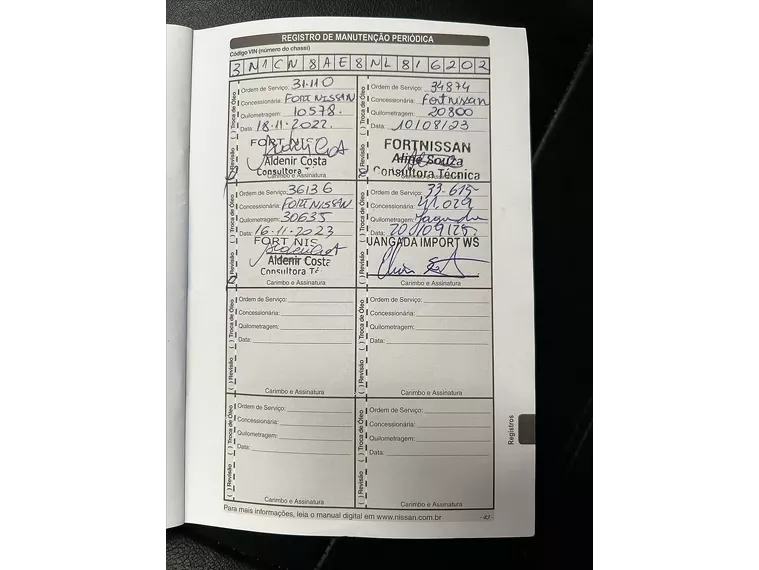 REGISTRO DE MANUTENÇÃO PERIÓDICA
Código VIN (número do chassi)
3 N 1 C N 8 A E 8 N L 8 1 6 2 0 2
( ) Revisão ( ) Troca de Óleo
Ordem de Serviço: 31.110
Concessionária: FORT NISSAN
Quilometragem: 10578.
Data: 18.11.2022.
FORT NIS
Aldenir Costa
Consultora T
Carimbo e Assinatura
( ) Revisão ( ) Troca de Óleo
Ordem de Serviço: 34874
Concessionária: Fortnissan
Quilometragem: 20800
Data: 10/08/23
FORTNISSAN
Aline Souza
Consultora Técnica
Carimbo e Assinatura
( ) Revisão ( ) Troca de Óleo
Ordem de Serviço: 36136
Concessionária: FORT NISSAN
Quilometragem: 30635
Data: 16.11.2023
FORT NIS
Aldenir Costa
Consultora T
Carimbo e Assinatura
( ) Revisão ( ) Troca de Óleo
Ordem de Serviço: 33.615
Concessionária: 41.029
Quilometragem:
Data:
JANGADA IMPORT WS
Carimbo e Assinatura
( ) Revisão ( ) Troca de Óleo
Ordem de Serviço:
Concessionária:
Quilometragem:
Data:
Carimbo e Assinatura
( ) Revisão ( ) Troca de Óleo
Ordem de Serviço:
Concessionária:
Quilometragem:
Data:
Carimbo e Assinatura
( ) Revisão ( ) Troca de Óleo
Ordem de Serviço:
Concessionária:
Quilometragem:
Data:
Carimbo e Assinatura
( ) Revisão ( ) Troca de Óleo
Ordem de Serviço:
Concessionária:
Quilometragem:
Data:
Carimbo e Assinatura
Registros
Para mais informações, leia o manual digital em www.nissan.com.br
- 47 -